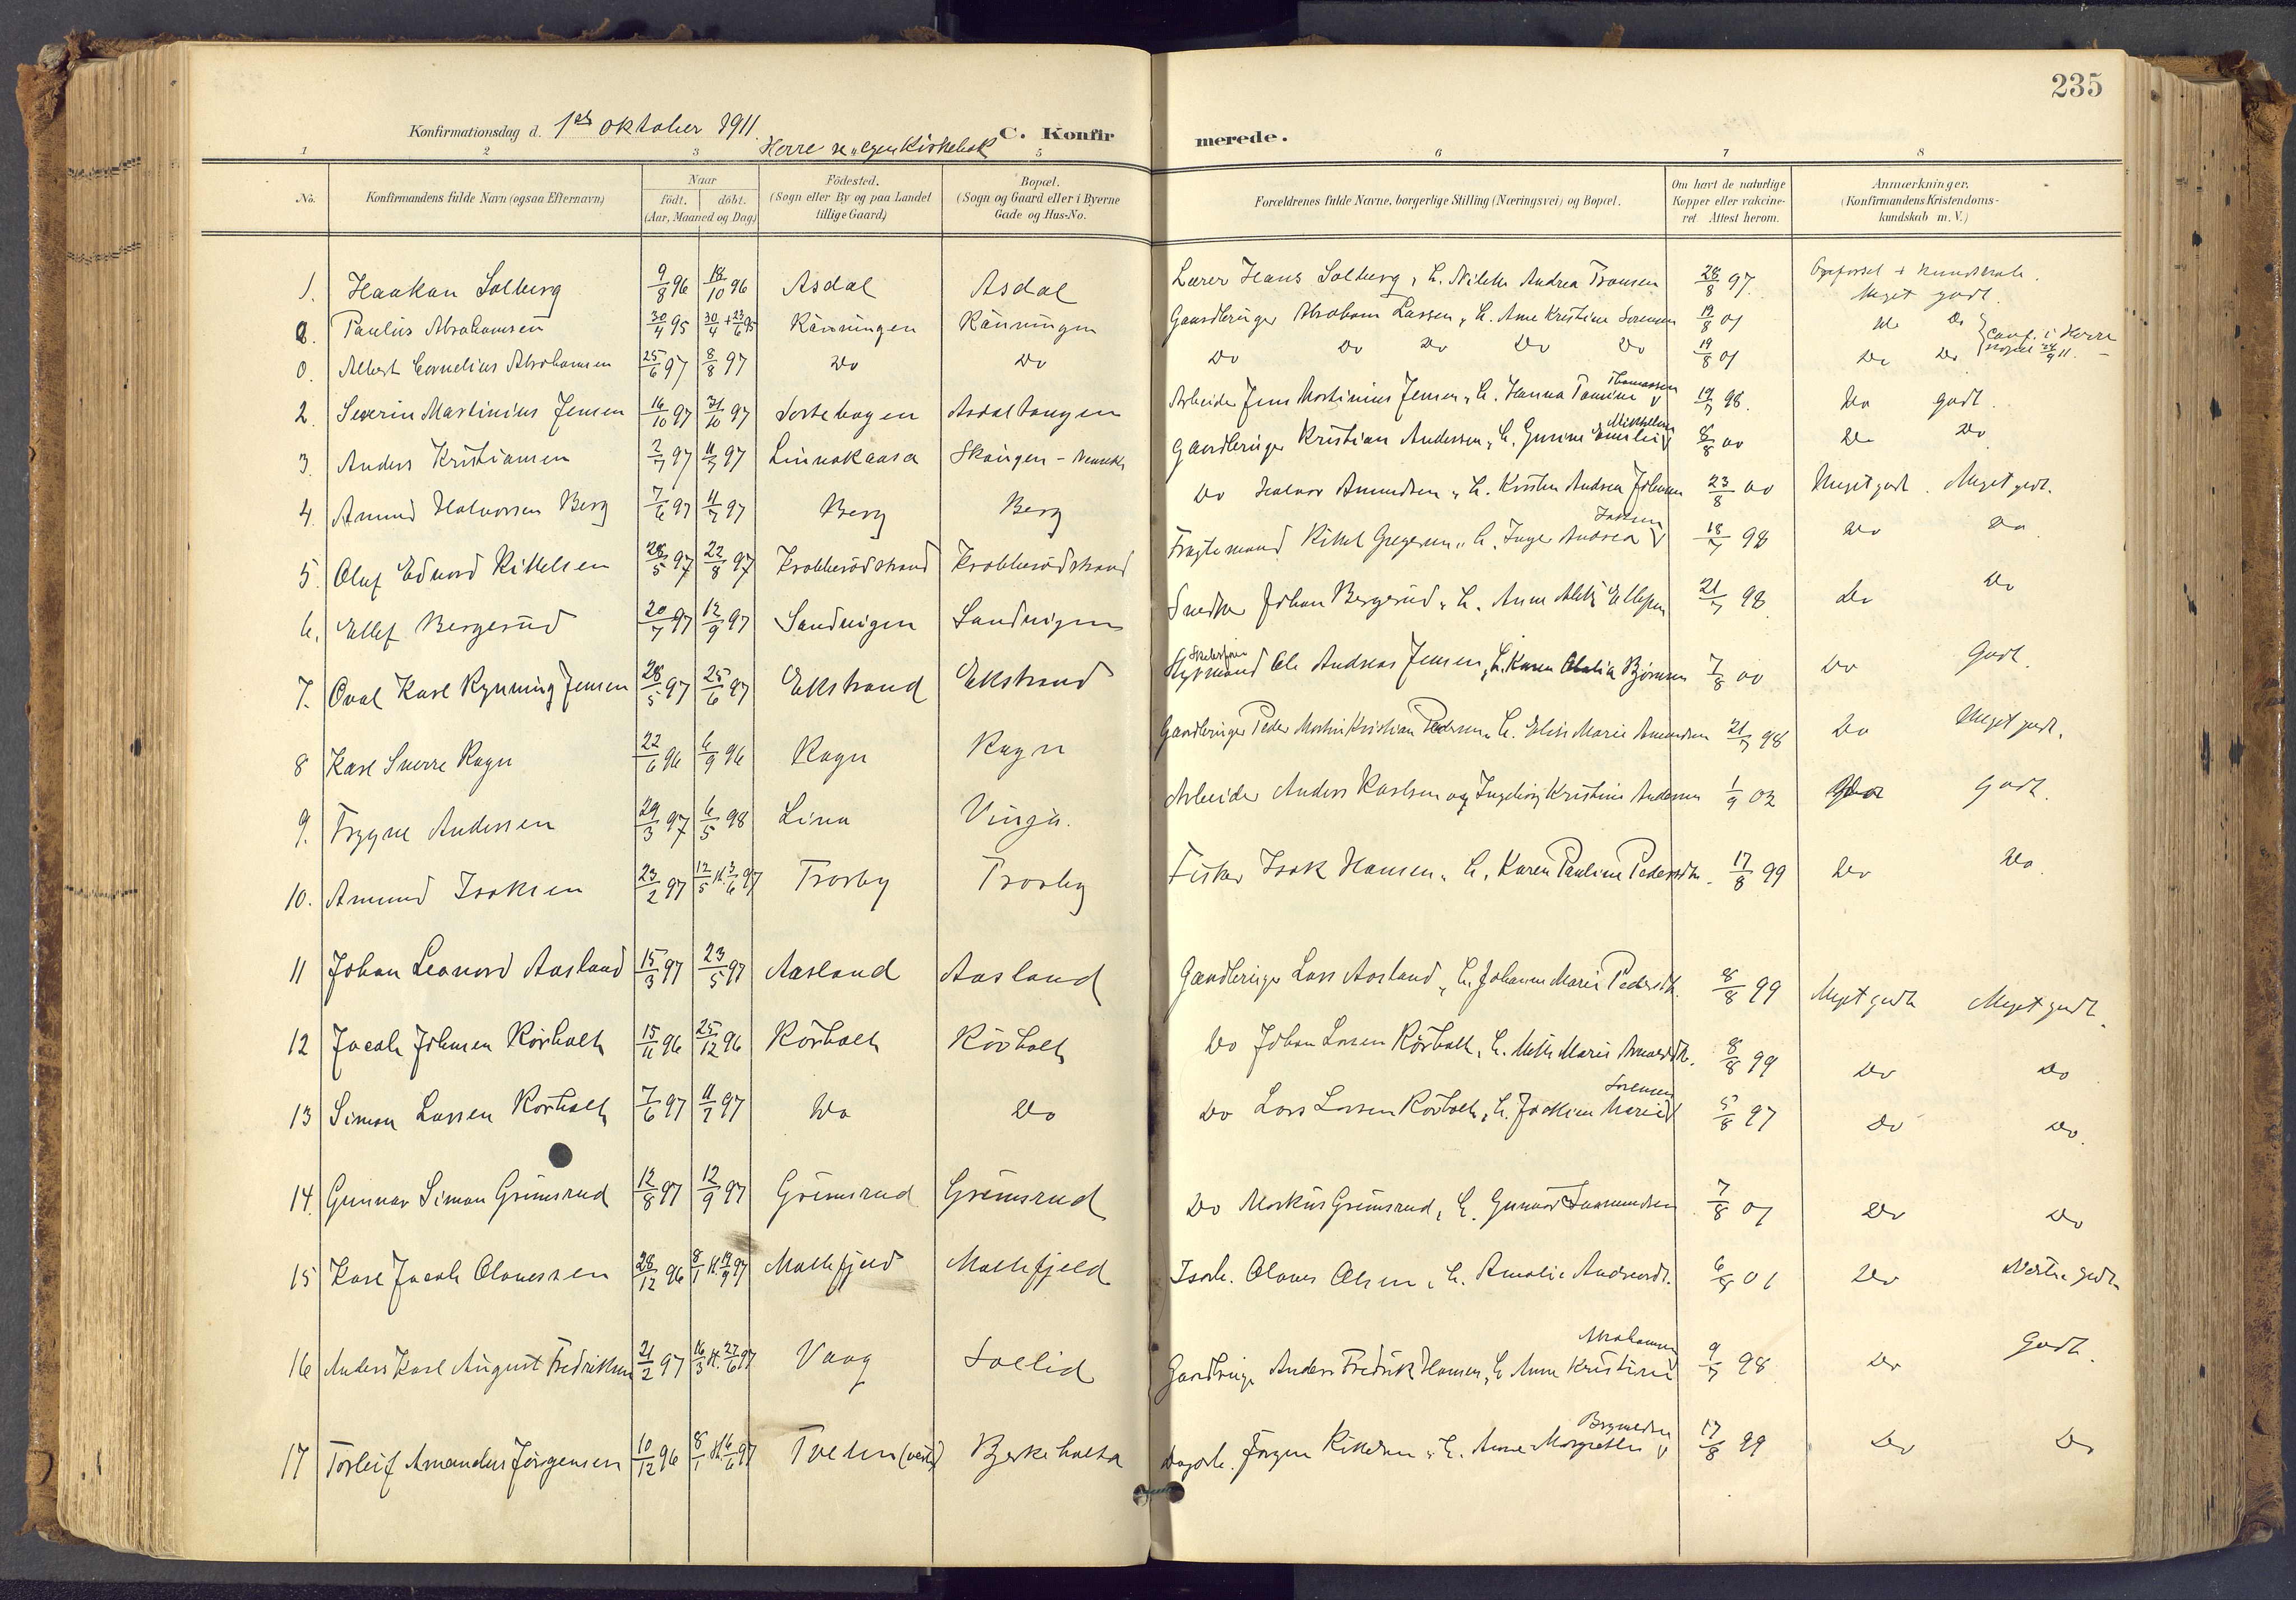 235
Konfirmationsdag d. 1ste oktober 1911. C. Konfirmerede.
Herre se egen Kirkebok
1 2 3 5 6 7 8
No. Konfirmandens fulde Navn (ogsaa Efternavn) Naar födt. döbt. (Aar, Maaned og Dag) Födested. (Sogn eller By og paa Landet tillige Gaard) Bopæl. (Sogn og Gaard eller i Byerne Gade og Hus-No. Forældrenes fulde Navne, borgerlige Stilling (Næringsvei) og Bopæl. Om havt de naturlige Kopper eller vaccineret Attest herom. Anmærkninger. (Konfirmandens Kristendomskundskab m. V.)
1. Haakon Solberg 9/8 96 18/10 96 Asdal Asdal Lærer Hans Solberg, h. Andrea 28/8 97. Opförsel + Kundskab. Meget godt.
0. Paulus Abrahamsen 30/4 95 30/4 + 23/6 95 Känningen Känningen Gaardbruger Abraham Larsen, h. Ane Kristine Sorensen 19/8 01 Do Do
0. Albert Cornelius Abrahamsen 25/6 97 8/8 97 Do Do Do Do Do Do Do 19/8 01 Do Do Conf. i Herre Kapel 24/9 11.
2. Severin Martinius Jensen 16/10 97 31/10 97 Tortebogen Asdaltangen Arbeider Jens Martinius Jensen, h. Hanna Thomassen 19/7 98. Do godt.
3. Anders Kristiansen 2/7 97 11/7 97 Linnakaasa Skougen - Gaardbruger Kristian Andersen, h. Gurine Emilie Mikkelsen 8/8 00 Do Do
4. Amund Halvorsen Berg 7/6 97 11/7 97 Berg Berg Do Halvor Amundsen, h. Andrea Johnsen 23/8 00 Meget godt. Meget godt.
5. Oluf Edvard Kittelsen 28/5 97 22/8 97 Krabberödstrand Krabberödstrand Fragtemand Kittel Gregersen, h. Inger Andrea 18/7 98 Do Do
6. Ellef Bergerud 20/7 97 12/9 97 Sandvigen Sandvigen Snedker Johan Bergerud, h. Anne Ellefsen 21/7 98 Do Do
7. Oval Karl Rynning Jensen 28/5 97 25/6 97 Ekstrand Ekstrand Styrmand Ole Andreas Jensen, h. Karen Olalia Björnsen 7/8 00 Do Godt.
8 Karl Sverre Rogn 22/6 96 6/9 96 Rogn Rogn Gaardbruger Peder Martin Kristian Pedersen, h. Elise Marie Amundsen 21/7 98 Do Meget godt.
9. Trygve Andersen 29/3 97 6/5 98 Lina Vinja. Arbeider Anders Karlsen og Ingeborg Kristine Andersen 1/9 02 godt.
10. Amund Isaksen 23/2 97 12/5 K. 3/6 97 Trosby Trosby Fisker Isak Hansen, h. Karen Pauline Pedersdtr. 17/8 99 Do Do
11 Johan Leonard Aasland 15/3 97 23/5 97 Aasland Aasland Gaardbruger Lars Aasland, h. Johanne Marie Pedersdt. 8/8 99 Meget godt Meget godt.
12 Jacob Johnsen Körholt 15/11 96 25/12 96 Körholt Körholt Do Johan Larsen Körholt, h. Marie 8/8 99 Do Do
13 Simon Larsen Körholt 7/6 97 11/7 97 Do Do Do Lars Larsen Körholt, h. Marie Sorensen 5/8 97 Do Do.
14. Gunnar Simon Grimsrud 12/8 97 12/9 97 Grimsrud Grimsrud Do Markus Grimsrud, h. 7/8 01 Do Do
15 Karl Jacob Olavessen 28/12 96 8/1 K. 19/9 97 Mallefjeld Mallefjeld Olaves Olsen, h. Amalie 01 Do Næsten godt
16 Anders Karl August Fredriksen 21/2 97 16/3 K. 27/6 97 Vaag Sollid Anders Fredrik Hansen, h. Anne Kristine Abrahamsen 9/7 98 Do Godt.
17 Torleif Amandus Jörgensen 10/12 96 8/1 K. 6/6 97 Tveten (vestre) Bjerkeholta Jörgen Kittelsen, h. Anne Margrethe 17/8 99 Do Do